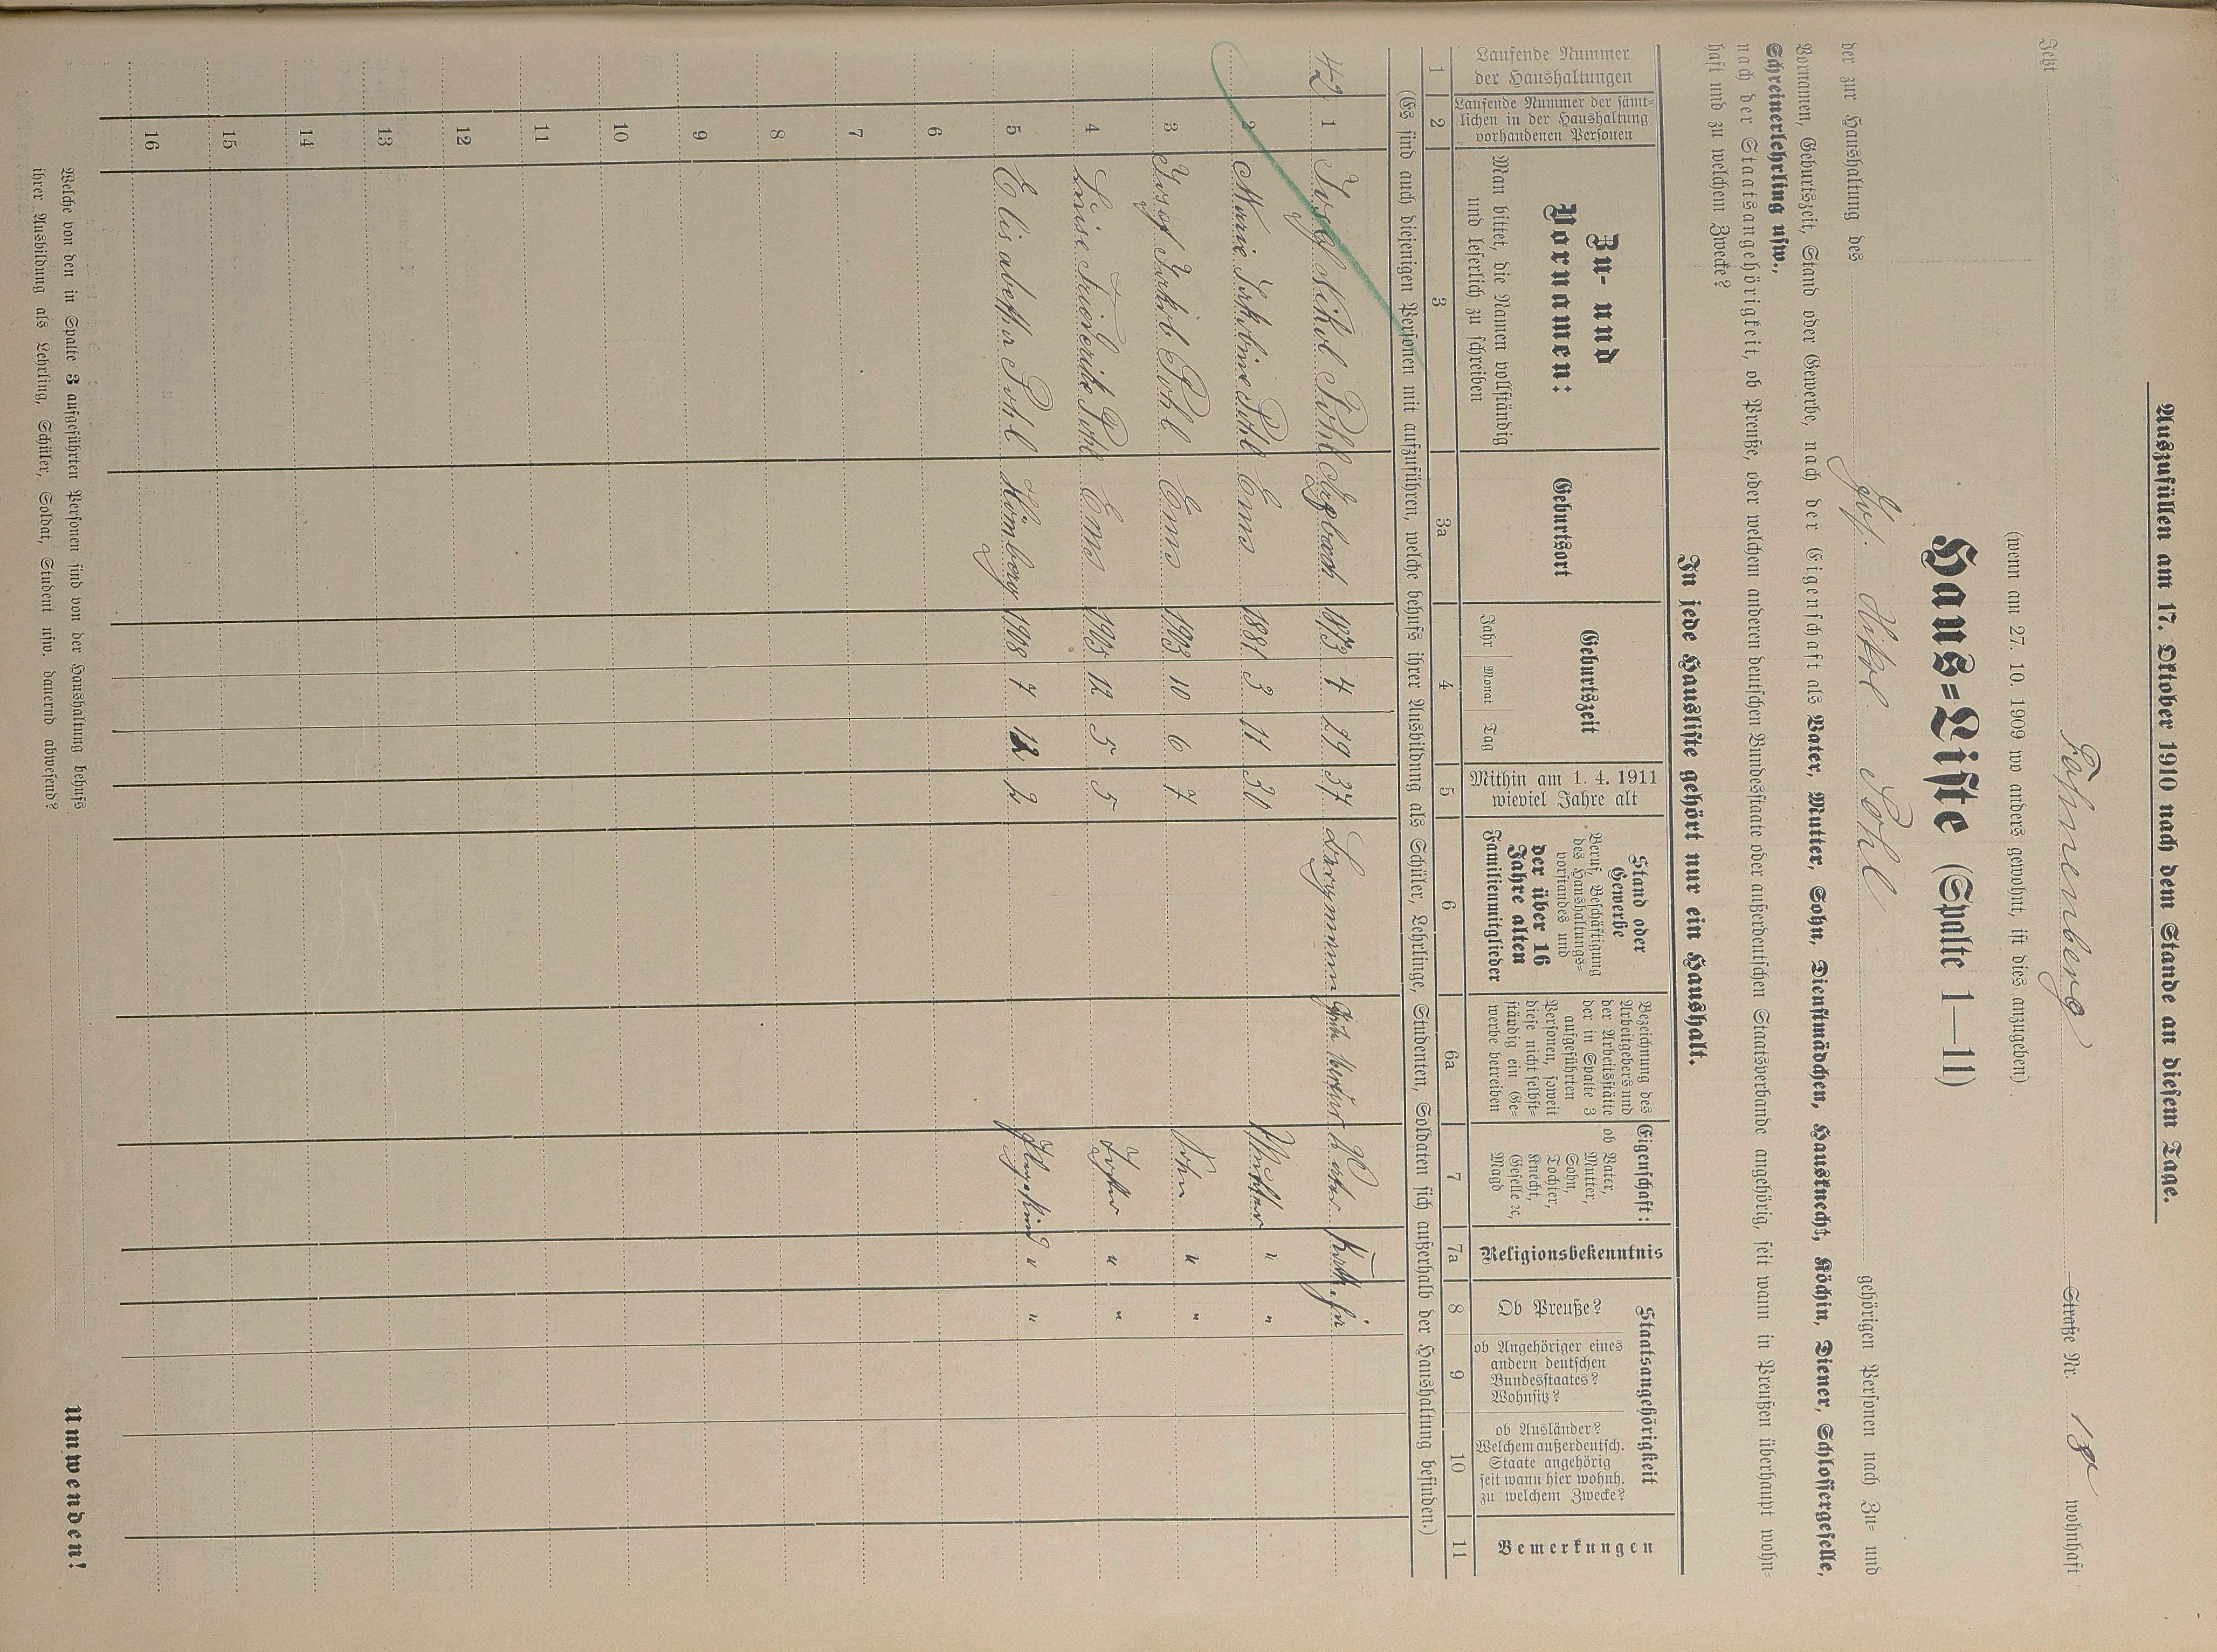 Auszufüllen am 17. Oktober 1910 nach dem Stande an diesem Tage.
Jetzt Fahnenberg Straße Nr. 18 wohnhaft
(wenn am 27. 10. 1909 wo anders gewohnt, ist dies anzugeben)
Haus=Liste (Spalte 1—11)
der zur Haushaltung des Jos. Nikol. Pohl gehörigen Personen nach Zu= und
Vornamen, Geburtszeit, Stand oder Gewerbe, nach der Eigenschaft als Vater, Mutter, Sohn, Dienstmädchen, Hausknecht, Köchin, Diener, Schlossergeselle,
Schreinerlehrling usw.,
nach der Staatsangehörigkeit, ob Preuße, oder welchem anderen deutschen Bundesstaate oder außerdeutschen Staatsverbande angehörig, seit wann in Preußen überhaupt wohn=
haft und zu welchem Zwecke?
In jede Hausliste gehört nur ein Haushalt.
Laufende Nummer
der Haushaltungen
Laufende Nummer der sämt=
lichen in der Haushaltung
vorhandenen Personen
Zu- und
Vornamen:
Man bittet, die Namen vollständig
und leserlich zu schreiben
Geburtsort
Geburtszeit
Jahr Monat Tag
Mithin am 1. 4. 1911
wieviel Jahre alt
Stand oder
Gewerbe
Beruf, Beschäftigung
des Haushaltungs=
vorstandes und
der über 16
Jahre alten
Familienmitglieder
Bezeichnung des
Arbeitgebers und
der Arbeitsstätte
der in Spalte 3
aufgeführten
Personen, soweit
diese nicht selbst=
ständig ein Ge=
werbe betreiben
Eigenschaft:
ob Vater,
Mutter,
Sohn,
Tochter,
Knecht,
Geselle ꝛc,
Magd
Religionsbekenntnis
Staatsangehörigkeit
Ob Preuße?
ob Angehöriger eines
andern deutschen
Bundesstaates?
Wohnsitz?
ob Ausländer?
Welchem außerdeutsch.
Staate angehörig
seit wann hier wohnh.
zu welchem Zwecke?
Bemerkungen
1 2 3 3a 4 5 6 6a 7 7a 8 9 10 11
(Es sind auch diejenigen Personen mit aufzuführen, welche behufs ihrer Ausbildung als Schüler, Lehrlinge, Studenten, Soldaten sich außerhalb der Haushaltung befinden.)
42 1 Josef Nikol Pohl 1873 4 29 37 Bergmann Vater Kath. ja
2 Marie Jakobine Pohl Ems 1881 3 11 30 Mutter " "
3 Josef Jakob Pohl Ems 1903 10 6 7 Sohn " "
4 Luise Friederike Pohl Ems 1905 12 5 5 Tochter " "
5 Elisabetha Pohl Hömberg 1908 7 12 2 Pflegekind " "
6
7
8
9
10
11
12
13
14
15
16
Welche von den in Spalte 3 aufgeführten Personen sind von der Haushaltung behufs
ihrer Ausbildung als Lehrling, Schüler, Soldat, Student usw. dauernd abwesend?
Umwenden!